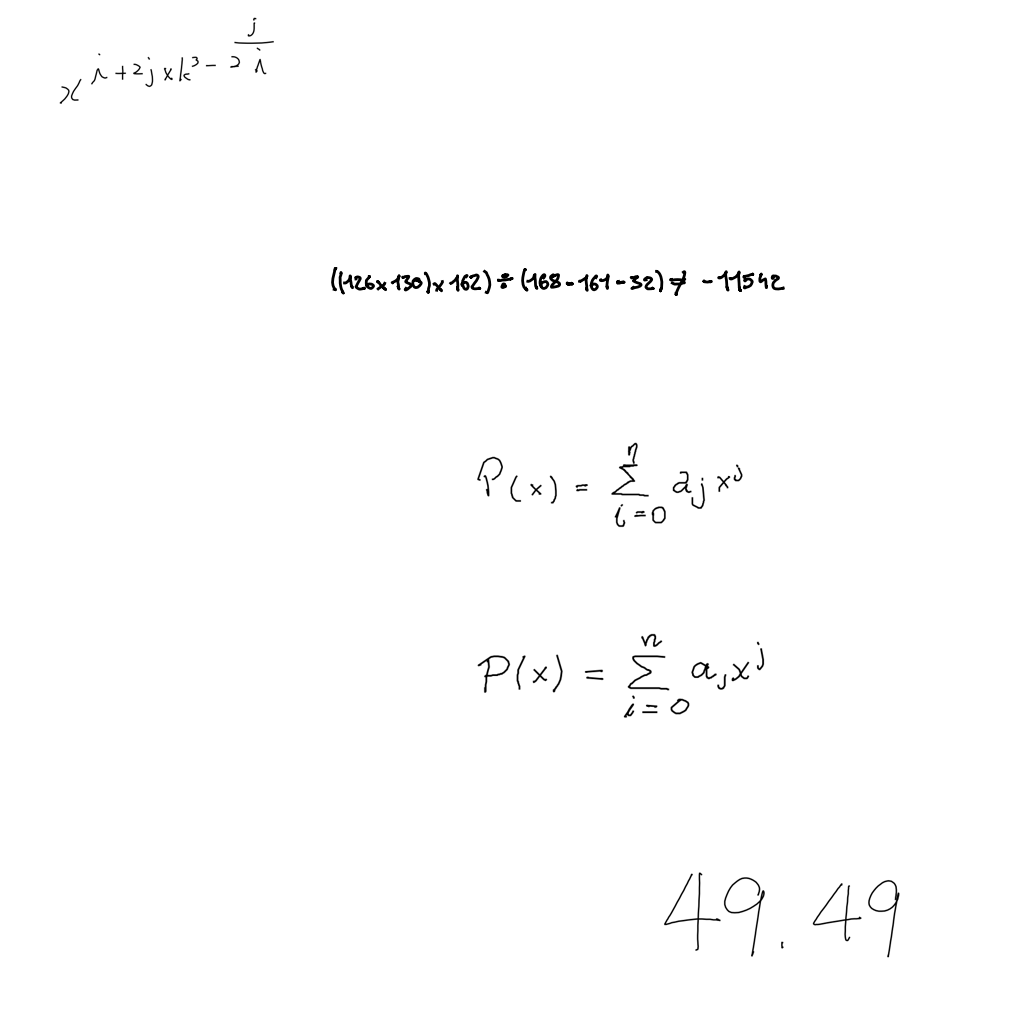 x^{i+2j×k^3-\frac{j}{2i}}
((126×130)×162)÷(168-161-32)≠ -11542
P(x) = \sum_{i=0}^{n} a_j x^j
P(x) = \sum_{i=0}^{n} a_j x^j
49.49